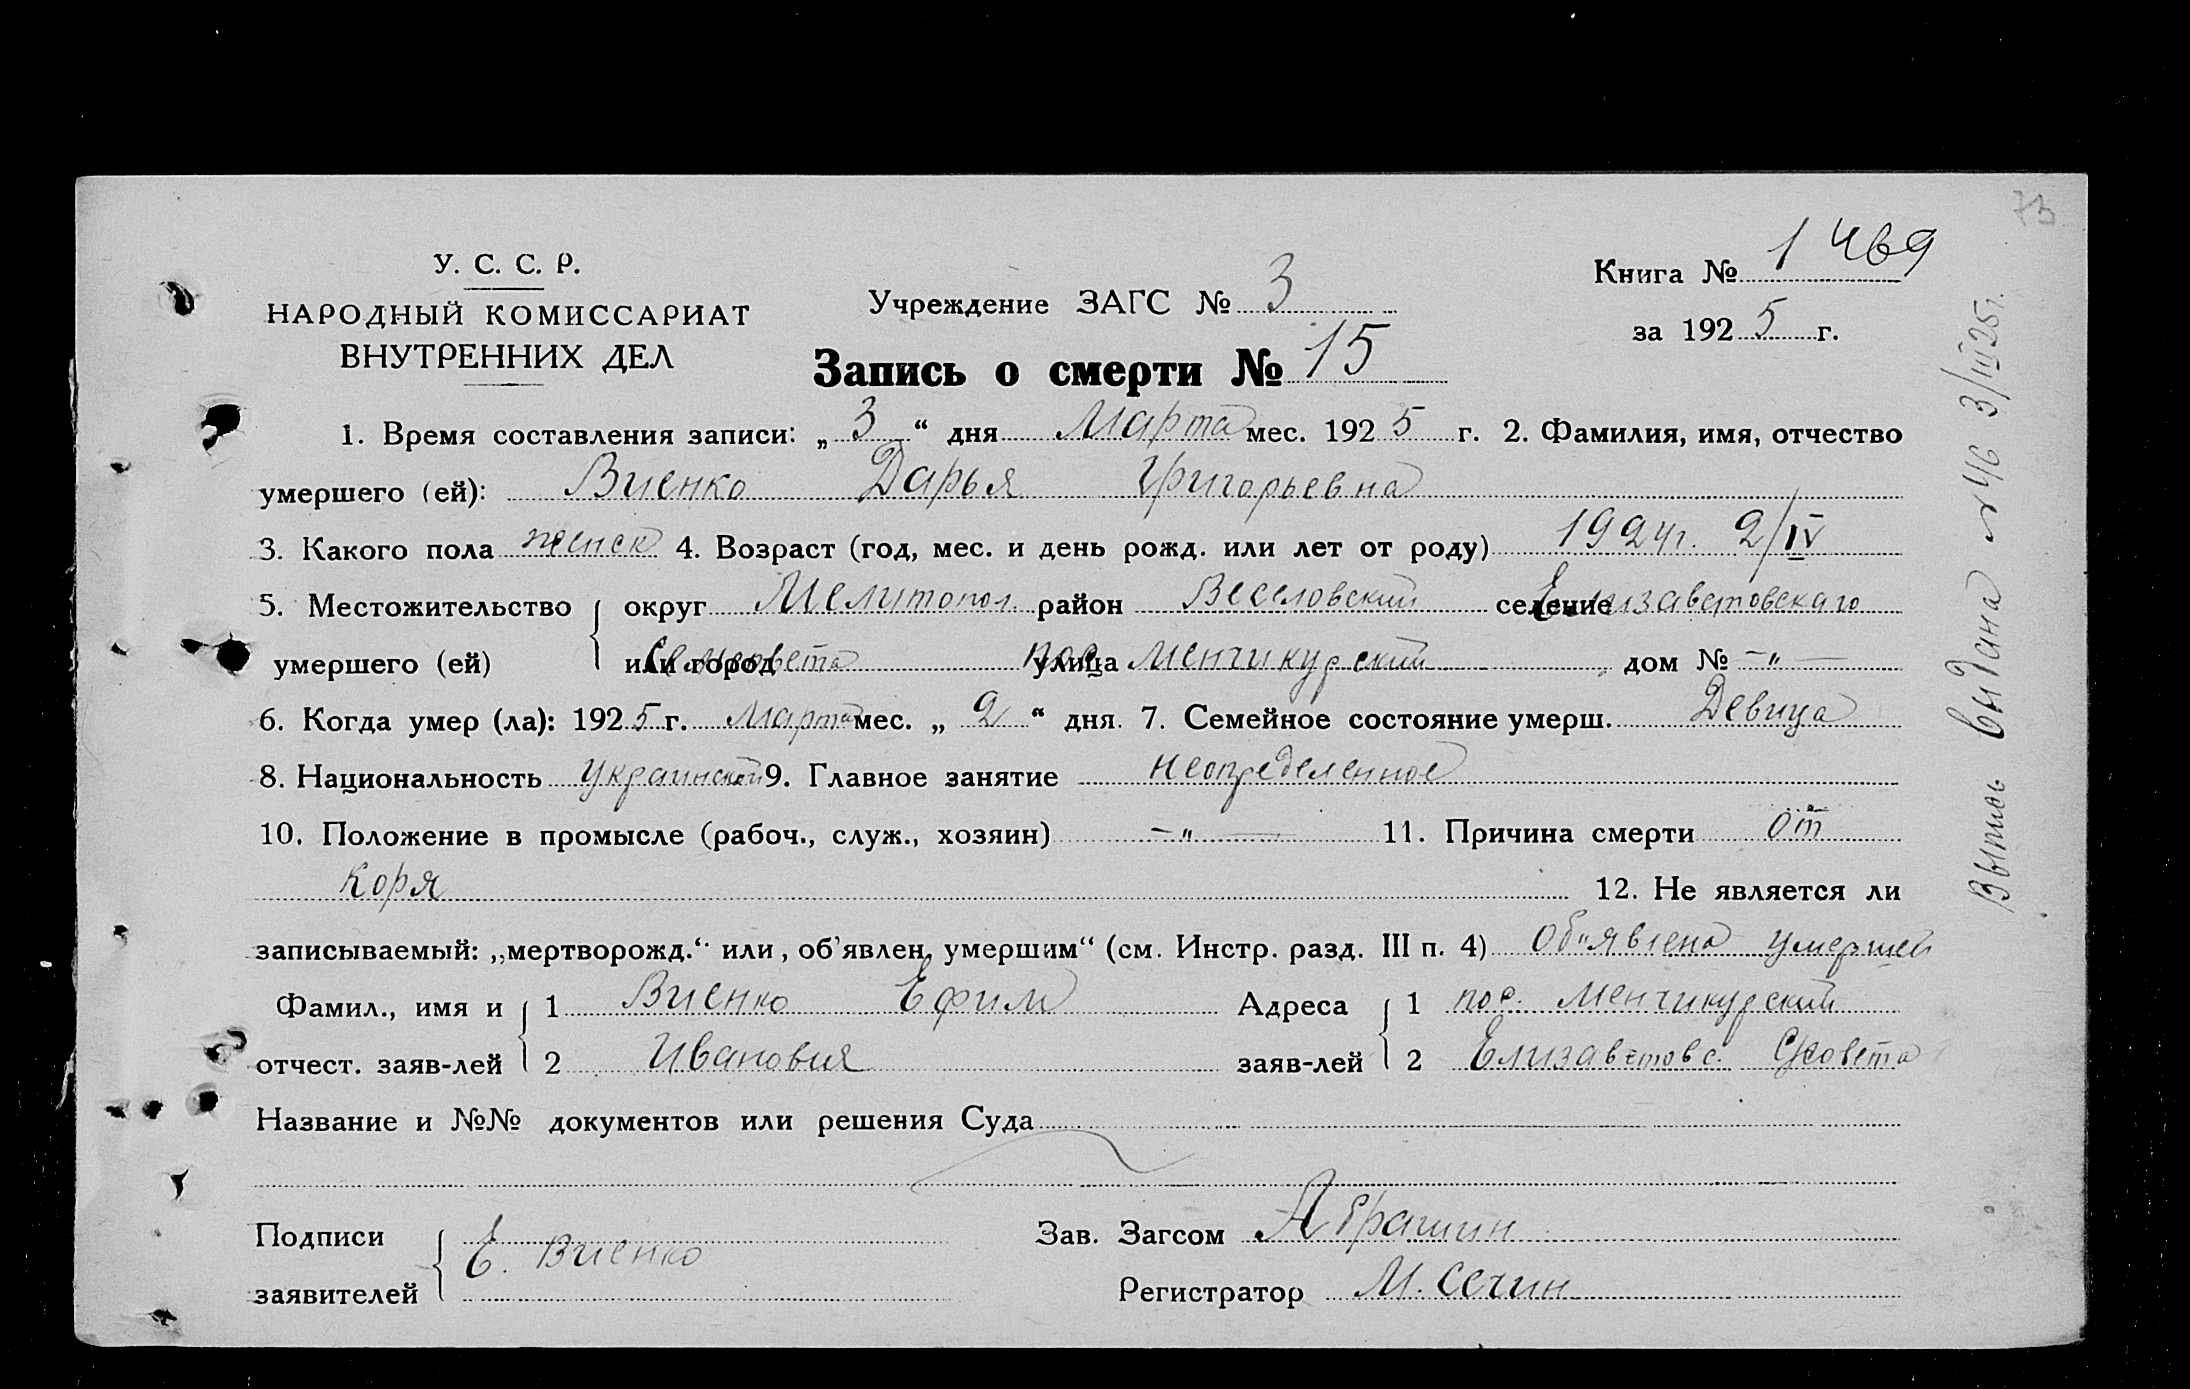 73
У. С. С. Р.
НАРОДНЫЙ КОМИССАРИАТ
ВНУТРЕННИХ ДЕЛ
Учреждение ЗАГС № 3
Книга № 1 469
за 1925 г.
Запись о смерти № 15
1. Время составления записи: „3“ дня Марта мес. 1925 г. 2. Фамилия, имя, отчество
умершего (ей): Виенко Дарья Григорьевна
3. Какого пола женск 4. Возраст (год, мес. и день рожд. или лет от роду) 1924г. 2/IV
5. Местожительство округ Мелитопол. район Веселовский селение Елизаветовскаго
умершего (ей) или город Сельсовета улица пос. Менчикурский дом № –„–
6. Когда умер (ла): 1925 г. Марта мес. „2“ дня. 7. Семейное состояние умерш. Девица
8. Национальность украинской 9. Главное занятие неопределенное
10. Положение в промысле (рабоч., служ., хозяин) –„– 11. Причина смерти от
Коря 12. Не является ли
записываемый: „мертворожд.“ или, об'явлен. умершим“ (см. Инстр. разд. III п. 4) Об"явлена умершей
Фамил., имя и 1 Виенко Ефим Адреса 1 пос. Менчикурский
отчест. заяв-лей 2 Ивановия заяв-лей 2 Елизаветовс. С/совета
Название и №№ документов или решения Суда
Подписи Е. Виенко Зав. Загсом Абрашин
заявителей Регистратор М. Сечин
Выпись выдана №46 3/III 25г.